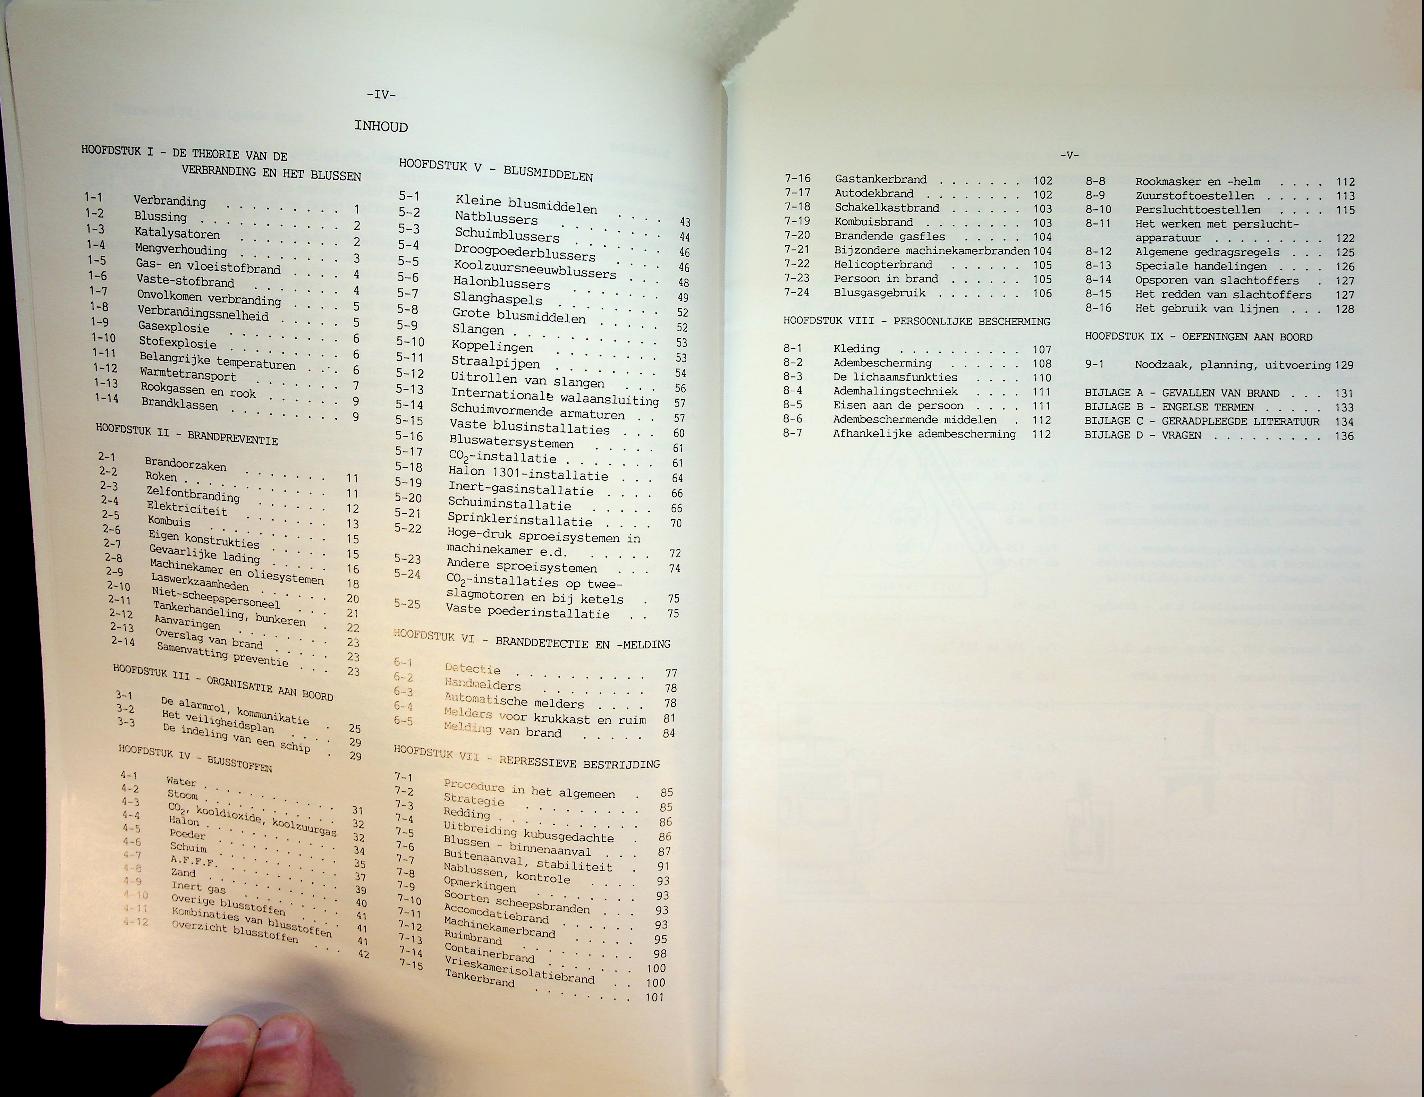 -IV-
INHOUD
HOOFDSTUK I - DE THEORIE VAN DE
VERBRANDING EN HET BLUSSEN
1-1 Verbranding . . . . . . . . . 1
1-2 Blussing . . . . . . . . . . 2
1-3 Katalysatoren . . . . . . . . 2
1-4 Mengverhouding . . . . . . . 3
1-5 Gas- en vloeistofbrand . . . . 4
1-6 Vaste-stofbrand . . . . . . . 4
1-7 Onvolkomen verbranding . . . . 5
1-8 Verbrandingssnelheid . . . . . 5
1-9 Gasexplosie . . . . . . . . . 6
1-10 Stofexplosie . . . . . . . . 6
1-11 Belangrijke temperaturen . . . 6
1-12 Warmtetransport . . . . . . . 7
1-13 Rookgassen en rook . . . . . . 9
1-14 Brandklassen . . . . . . . . 9
HOOFDSTUK II - BRANDPREVENTIE
2-1 Brandoorzaken . . . . . . . 11
2-2 Roken . . . . . . . . . . . 11
2-3 Zelfontbranding . . . . . . . 12
2-4 Elektriciteit . . . . . . . 13
2-5 Kombuis . . . . . . . . . . 15
2-6 Eigen konstrukties . . . . . 15
2-7 Gevaarlijke lading . . . . . 16
2-8 Machinekamer en oliesystemen 18
2-9 Laswerkzaamheden . . . . . . 20
2-10 Niet-scheepspersoneel . . . 21
2-11 Tankerhandeling, bunkeren . 22
2-12 Aanvaringen . . . . . . . . 23
2-13 Overslag van brand . . . . . 23
2-14 Samenvatting preventie . . . 23
HOOFDSTUK III - ORGANISATIE AAN BOORD
3-1 De alarmrol, kommunikatie . 25
3-2 Het veiligheidsplan . . . . 29
3-3 De indeling van een schip . 29
HOOFDSTUK IV - BLUSSTOFFEN
4-1 Water . . . . . . . . . . . 31
4-2 Stoom . . . . . . . . . . . 32
4-3 CO2, kooldioxide, koolzuurgas 32
4-4 Halon . . . . . . . . . . . 34
4-5 Poeder . . . . . . . . . . . 35
4-6 Schuim . . . . . . . . . . . 37
4-7 A.F.F.F. . . . . . . . . . . 39
4-8 Zand . . . . . . . . . . . . 40
4-9 Inert gas . . . . . . . . . 41
4-10 Overige blusstoffen . . . . 41
4-11 Kombinaties van blusstoffen 41
4-12 Overzicht blusstoffen . . . 42
HOOFDSTUK V - BLUSMIDDELEN
5-1 Kleine blusmiddelen . . . . 43
5-2 Natblussers . . . . . . . . 44
5-3 Schuimblussers . . . . . . . 46
5-4 Droogpoederblussers . . . . 46
5-5 Koolzuursneeuwblussers . . . 48
5-6 Halonblussers . . . . . . . 49
5-7 Slanghaspels . . . . . . . . 52
5-8 Grote blusmiddelen . . . . . 52
5-9 Slangen . . . . . . . . . . 53
5-10 Koppelingen . . . . . . . . 53
5-11 Straalpijpen . . . . . . . . 54
5-12 Uitrollen van slangen . . . 56
5-13 Internationale walaansluiting 57
5-14 Schuimvormende armaturen . . 57
5-15 Vaste blusinstallaties . . . 60
5-16 Bluswatersystemen . . . . . 61
5-17 CO2-installatie . . . . . . 61
5-18 Halon 1301-installatie . . . 64
5-19 Inert-gasinstallatie . . . . 66
5-20 Schuiminstallatie . . . . . 66
5-21 Sprinklerinstallatie . . . . 70
5-22 Hoge-druk sproeisystemen in
machinekamer e.d. . . . . . 72
5-23 Andere sproeisystemen . . . 74
5-24 CO2-installaties op twee-
slagmotoren en bij ketels . 75
5-25 Vaste poederinstallatie . . 75
HOOFDSTUK VI - BRANDDETECTIE EN -MELDING
6-1 Detectie . . . . . . . . . . 77
6-2 Handmelders . . . . . . . . 78
6-3 Automatische melders . . . . 78
6-4 Melders voor krukkast en ruim 81
6-5 Melding van brand . . . . . 84
HOOFDSTUK VII - REPRESSIEVE BESTRIJDING
7-1 Procedure in het algemeen . 85
7-2 Strategie . . . . . . . . . 85
7-3 Redding . . . . . . . . . . 86
7-4 Uitbreiding kubusgedachte . 86
7-5 Blussen - binnenaanval . . . 87
7-6 Buitenaanval, stabiliteit . 91
7-7 Nablussen, kontrole . . . . 93
7-8 Opmerkingen . . . . . . . . 93
7-9 Soorten scheepsbranden . . . 93
7-10 Accomodatiebrand . . . . . . 93
7-11 Machinekamerbrand . . . . . 95
7-12 Ruimbrand . . . . . . . . . 98
7-13 Containerbrand . . . . . . . 100
7-14 Vrieskamerisolatiebrand . . 100
7-15 Tankerbrand . . . . . . . . 101
-V-
7-16 Gastankerbrand . . . . . . . 102
7-17 Autodekbrand . . . . . . . . 102
7-18 Schakelkastbrand . . . . . . 103
7-19 Kombuisbrand . . . . . . . . 103
7-20 Brandende gasfles . . . . . 104
7-21 Bijzondere machinekamerbranden 104
7-22 Helicopterbrand . . . . . . 105
7-23 Persoon in brand . . . . . . 105
7-24 Blusgasgebruik . . . . . . . 106
HOOFDSTUK VIII - PERSOONLIJKE BESCHERMING
8-1 Kleding . . . . . . . . . . 107
8-2 Adembescherming . . . . . . 108
8-3 De lichaamsfunkties . . . . 110
8-4 Ademhalingstechniek . . . . 111
8-5 Eisen aan de persoon . . . . 111
8-6 Adembeschermende middelen . 112
8-7 Afhankelijke adembescherming 112
8-8 Rookmasker en -helm . . . . 112
8-9 Zuurstoftoestellen . . . . . 113
8-10 Persluchttoestellen . . . . 115
8-11 Het werken met perslucht-
apparatuur . . . . . . . . . 122
8-12 Algemene gedragsregels . . . 125
8-13 Speciale handelingen . . . . 126
8-14 Opsporen van slachtoffers . 127
8-15 Het redden van slachtoffers 127
8-16 Het gebruik van lijnen . . . 128
HOOFDSTUK IX - OEFENINGEN AAN BOORD
9-1 Noodzaak, planning, uitvoering 129
BIJLAGE A - GEVALLEN VAN BRAND . . . 131
BIJLAGE B - ENGELSE TERMEN . . . . . 133
BIJLAGE C - GERAADPLEEGDE LITERATUUR 134
BIJLAGE D - VRAGEN . . . . . . . . . 136